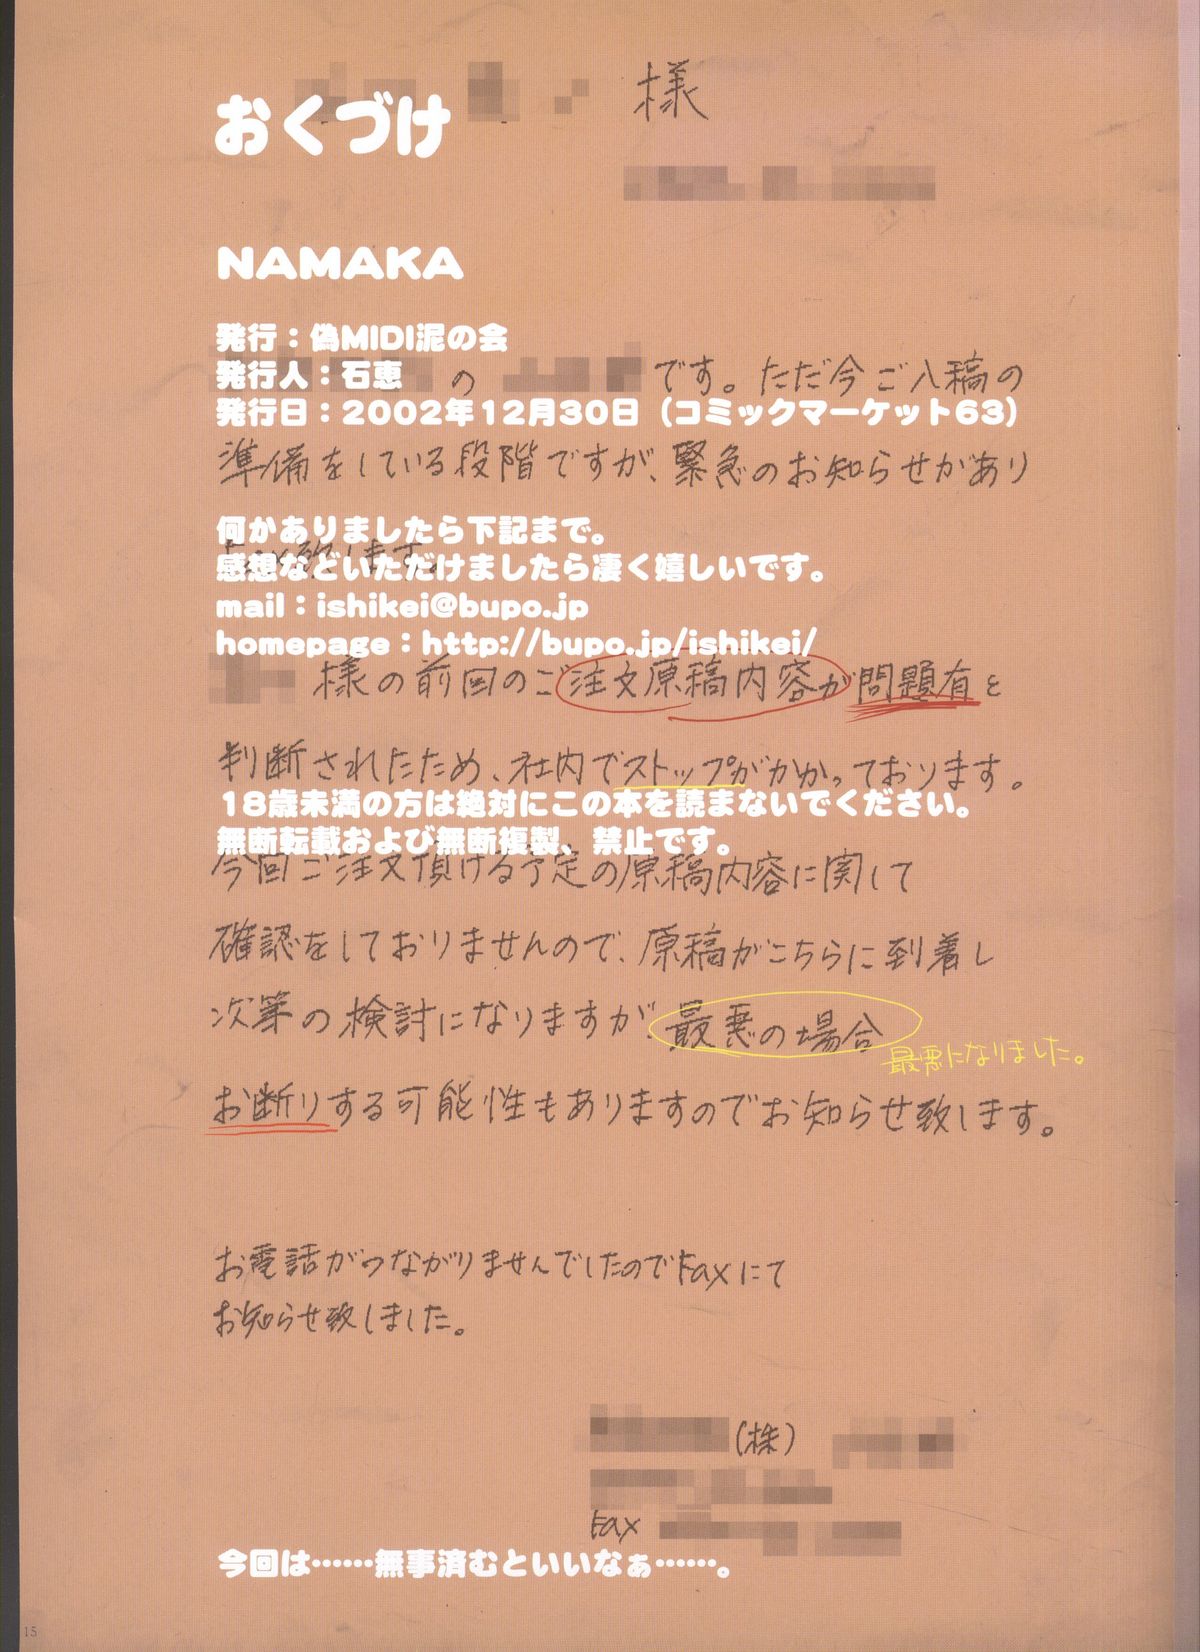 様
おくづけ
NAMAKA
発行：偽MIDI泥の会
発行人：石恵
の
です。ただ今ご入稿の
発行日：2002年12月30日（コミックマーケット63）
準備をしている段階ですが、緊急のお知らせがあり
何かありましたら下記まで。
致します。
感想などいただけましたら凄く嬉しいです。
mail：ishikei@bupo.jp
homepage：http://bupo.jp/ishikei/
様の前回のご注文原稿内容が問題有と
判断されたため、社内でストップがかかっております。
18歳未満の方は絶対にこの本を読まないでください。
無断転載および無断複製、禁止です。
今回ご注文頂ける予定の原稿内容に関して
確認をしておりませんので、原稿がこちらに到着し
次第の検討になりますが、最悪の場合
最悪になりました。
お断りする可能性もありますのでお知らせ致します。
お電話がつながりませんでしたのでFaxにて
お知らせ致しました。
(株)
Fax
今回は……無事済むといいなぁ……。
15